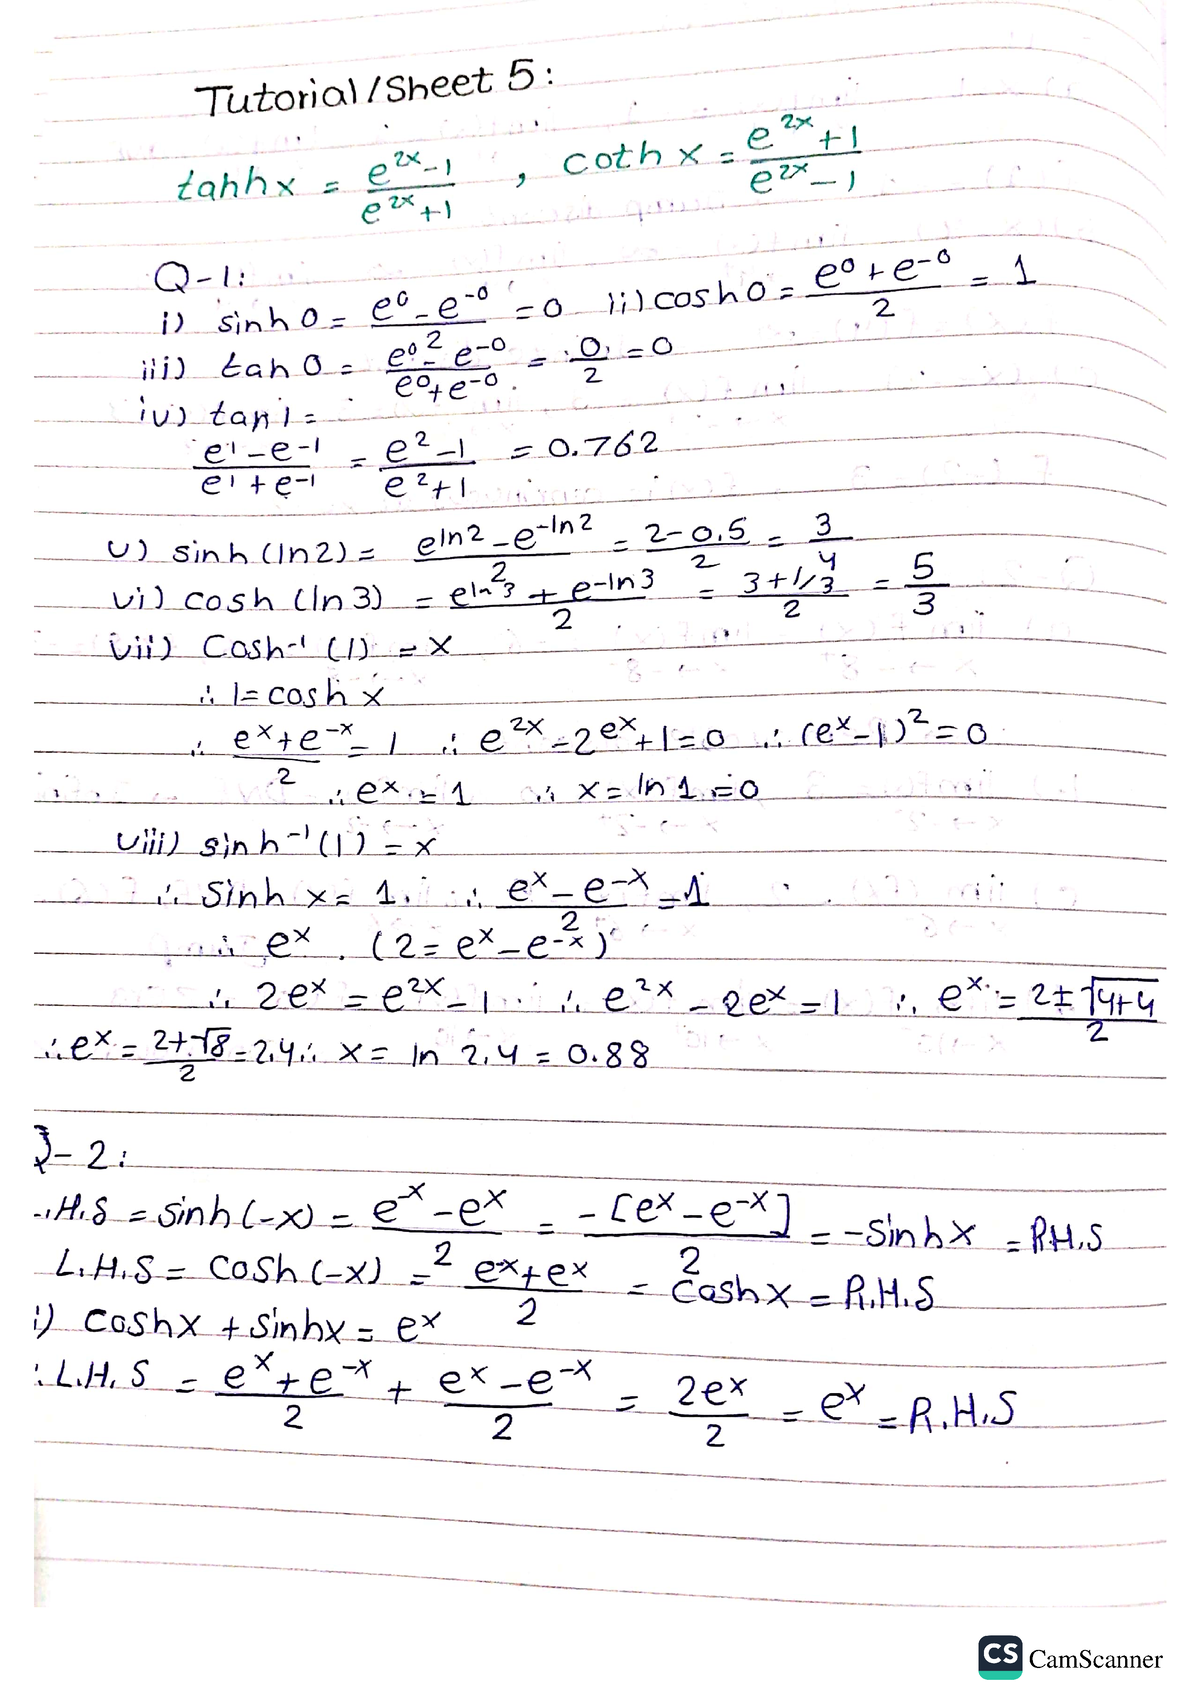 Tutorial/Sheet 5:
tanhx = e^2x - 1 / e^2x + 1 , coth x = e^2x + 1 / e^2x - 1
Q-1:
i) sinh 0 = e^0 - e^-0 / 2 = 0 ii) cosh 0 = e^0 + e^-0 / 2 = 1
iii) tan 0 = e^0 - e^-0 / e^0 + e^-0 = 0 / 2 = 0
iv) tan 1 =
e^1 - e^-1 / e^1 + e^-1 = e^2 - 1 / e^2 + 1 = 0.762
v) sinh (ln2) = e^ln2 - e^-ln2 / 2 = 2 - 0.5 / 2 = 3 / 4
vi) cosh (ln 3) = e^ln3 + e^-ln3 / 2 = 3 + 1/3 / 2 = 5 / 3
vii) Cosh^-1 (1) = x
∴ 1 = cosh x
∴ e^x + e^-x / 2 = 1 ∴ e^2x - 2e^x + 1 = 0 ∴ (e^x - 1)^2 = 0
∴ e^x = 1 ∴ x = ln 1 = 0
viii) sinh^-1 (1) = x
∴ Sinh x = 1 . ∴ e^x - e^-x / 2 = 1
∴ e^x . (2 = e^x - e^-x)
∴ 2e^x = e^2x - 1 ∴ e^2x - 2e^x = 1 ∴ e^x = 2 ± √4+4 / 2
∴ e^x = 2 + √8 / 2 = 2.4 ∴ x = ln 2.4 = 0.88
Q-2:
L.H.S = sinh (-x) = e^-x - e^x / 2 = -[e^x - e^-x] / 2 = -Sinhx = R.H.S
L.H.S = Cosh (-x) = e^-x + e^x / 2 = Coshx = R.H.S
i) Coshx + Sinhx = e^x
∴ L.H.S = e^x + e^-x / 2 + e^x - e^-x / 2 = 2e^x / 2 = e^x = R.H.S
CS CamScanner